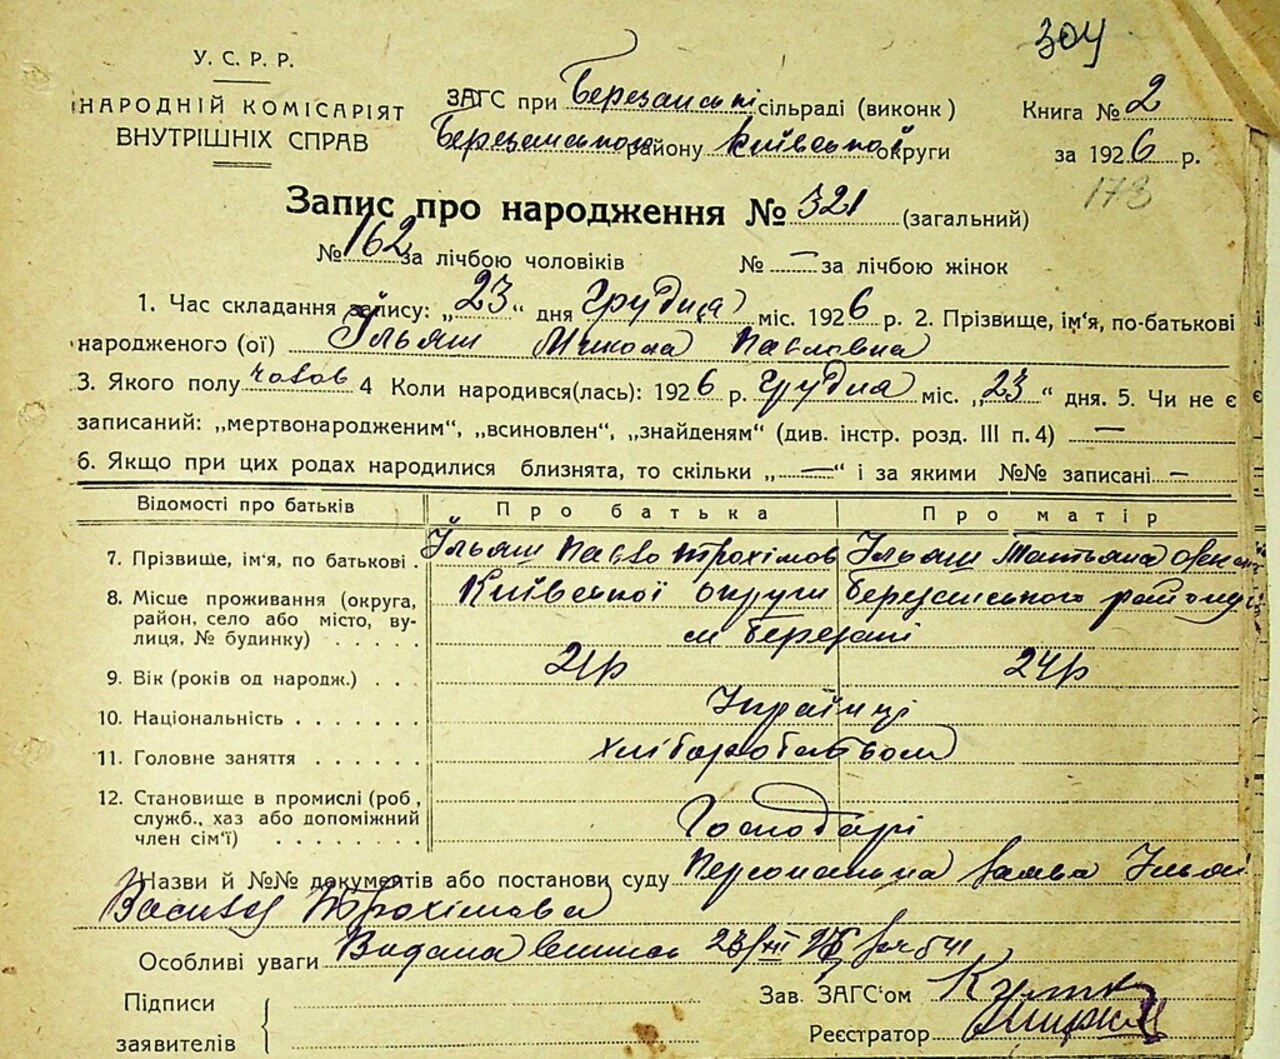 304
У. С. Р. Р.
НАРОДНІЙ КОМІСАРІЯТ
ВНУТРІШНІХ СПРАВ
ЗАГС при Березанській сільраді (виконк)
Березанського району Київської округи
Книга № 2
за 1926 р.
173
Запис про народження № 321 (загальний)
№ 162 за лічбою чоловіків № — за лічбою жінок
1. Час складання запису: „23“ дня Грудня міс. 1926 р. 2. Прізвище, ім‘я, по-батькові
народженого (ої) Ільяш Микола Павловна
3. Якого полу чолов 4 Коли народився(лась): 1926 р. Грудня міс. „23“ дня. 5. Чи не є
записаний: „мертвонародженим“, „всиновлен“, „знайденям“ (див. інстр. розд. III п. 4) —
6. Якщо при цих родах народилися близнята, то скільки „—“ і за якими №№ записані —
Відомості про батьків Про батька Про матір
7. Прізвище, ім‘я, по батькові . Ільяш Павло Трохімов Ільяш Татьяна
8. Місце проживання (округа, Київської округи Березанського району
район, село або місто, ву-
лиця, № будинку) . . . . . м Березані
9. Вік (років од народж.) . . 21р 24р
10. Національність . . . . . . . Українці
11. Головне заняття . . . . . . хліборобством
12. Становище в промислі (роб,
служб., хаз або допоміжний Господарі
член сім‘ї) . . . . . . . .
Назви й №№ документів або постанови суду Персональна заява
Трохімова
Особливі уваги Видана 23/XII 26
Підписи
заявителів
Зав. ЗАГС‘ом
Реєстратор